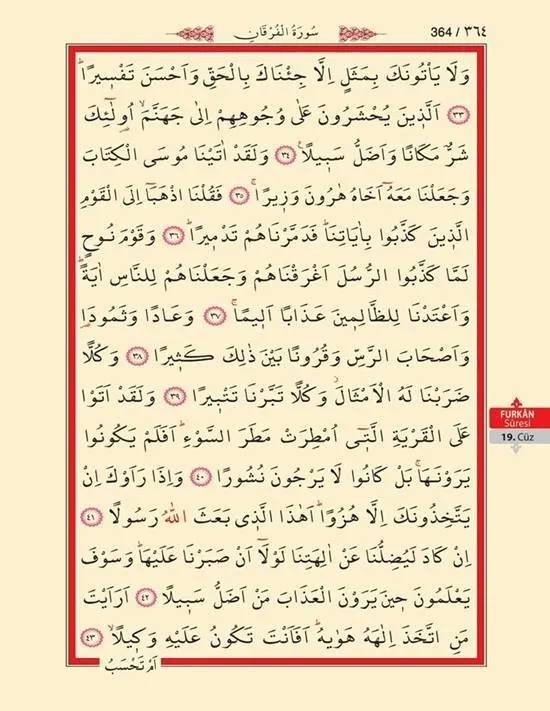 سُورَةُ الْفُرْقَانِ
364 / ٣٦٤
وَلَا يَأْتُونَكَ بِمَثَلٍ اِلَّا جِئْنَاكَ بِالْحَقِّ وَاَحْسَنَ تَفْسٖيرًاۜ
﴿٣٣﴾ اَلَّذٖينَ يُحْشَرُونَ عَلٰى وُجُوهِهِمْ اِلٰى جَهَنَّمَۙ اُو۬لٰٓئِكَ
شَرٌّ مَكَانًا وَاَضَلُّ سَبٖيلًا۟ ﴿٣٤﴾ وَلَقَدْ اٰتَيْنَا مُوسَى الْكِتَابَ
وَجَعَلْنَا مَعَهُٓ اَخَاهُ هٰرُونَ وَزٖيرًاۚ ﴿٣٥﴾ فَقُلْنَا اذْهَبَٓا اِلَى الْقَوْمِ
الَّذٖينَ كَذَّبُوا بِاٰيَاتِنَاۜ فَدَمَّرْنَاهُمْ تَدْمٖيرًاۜ ﴿٣٦﴾ وَقَوْمَ نُوحٍ
لَمَّا كَذَّبُوا الرُّسُلَ اَغْرَقْنَاهُمْ وَجَعَلْنَاهُمْ لِلنَّاسِ اٰيَةًۜ
وَاَعْتَدْنَا لِلظَّالِمٖينَ عَذَابًا اَلٖيمًاۚ ﴿٣٧﴾ وَعَادًا وَثَمُودَا۬
وَاَصْحَابَ الرَّسِّ وَقُرُونًا بَيْنَ ذٰلِكَ كَثٖيرًا ﴿٣٨﴾ وَكُلًّا
ضَرَبْنَا لَهُ الْاَمْثَالَۘ وَكُلًّا تَبَّرْنَا تَتْبٖيرًا ﴿٣٩﴾ وَلَقَدْ اَتَوْا
عَلَى الْقَرْيَةِ الَّتٖٓي اُمْطِرَتْ مَطَرَ السَّوْءِۜ اَفَلَمْ يَكُونُوا
يَرَوْنَهَاۚ بَلْ كَانُوا لَا يَرْجُونَ نُشُورًا ﴿٤٠﴾ وَاِذَا رَاَوْكَ اِنْ
يَتَّخِذُونَكَ اِلَّا هُزُوًاۜ اَهٰذَا الَّذٖي بَعَثَ اللّٰهُ رَسُولًا ﴿٤١﴾
اِنْ كَادَ لَيُضِلُّنَا عَنْ اٰلِهَتِنَا لَوْلَٓا اَنْ صَبَرْنَا عَلَيْهَاۜ وَسَوْفَ
يَعْلَمُونَ حٖينَ يَرَوْنَ الْعَذَابَ مَنْ اَضَلُّ سَبٖيلًا ﴿٤٢﴾ اَرَاَيْتَ
مَنِ اتَّخَذَ اِلٰهَهُ هَوٰيهُۜ اَفَاَنْتَ تَكُونُ عَلَيْهِ وَكٖيلًاۙ ﴿٤٣﴾
اَمْ تَحْسَبُ
FURKÂN
Sûresi
19. Cüz